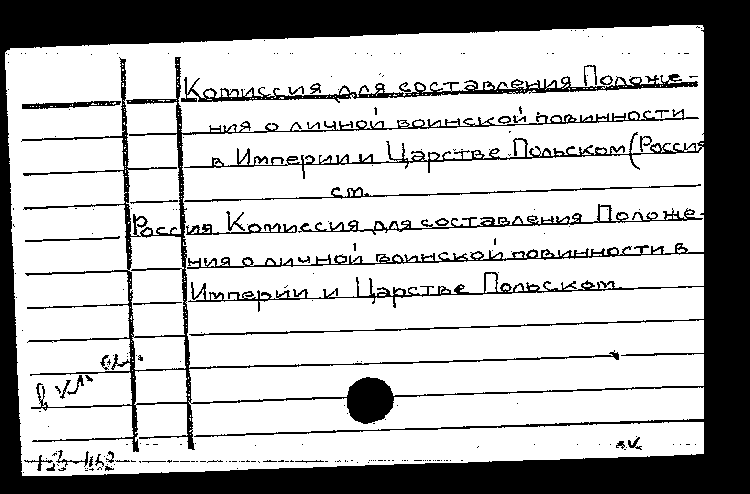 Комиссия для составления Положе-
ния о личной воинской повинности
в Империи и Царстве Польском (Россия
см.
Россия Комиссия для составления Положе-
ния о личной воинской повинности в
Империи и Царстве Польском.